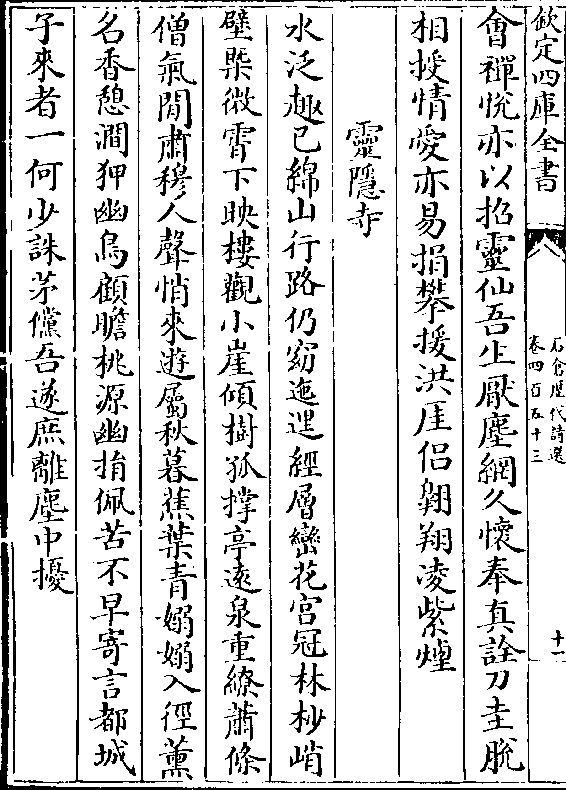 欽定四庫全書
石倉歴代詩選
卷四百五十三
十一
會禪悅亦以招靈仙吾生厭塵網久懷奉真詮刀圭脫
相授情愛亦易捐攀援洪厓侣翺翔凌紫煙
靈隱寺
水泛趣已綿山行路仍窈迤邐經層巒花宫冠林杪峭
壁槼微霄下映樓觀小崖傾樹狐撑亭逺泉重繚蕭條
僧氣閒肅穆人聲悄來遊屬秋暮蕉葉青嫋嫋入徑薫
名香憩澗狎幽鳥顧瞻桃源幽捐佩苦不早寄言都城
子來者一何少誅茅儻吾遂庶離塵中擾